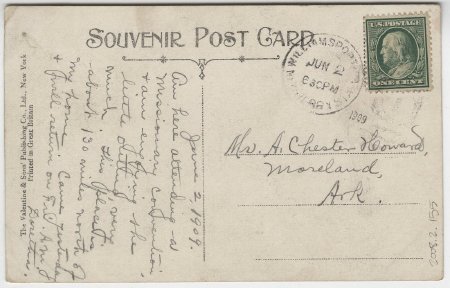 SOUVENIR POST CARD
WILLIAMSPORT
JUN 2
6 30 PM
1909
U.S. POSTAGE
ONE CENT
June 2, 1909.
Am here attending a
Missionary convention
& am enjoying the
little outing very
much. This place is
about 130 miles north of
my home. Came yesterday
& shall return on Fri. A.M.
Dorothy.
Mr. A. Chester Howard,
Moreland,
Ark.
The Valentine & Sons Publishing Co., Ltd., New York
Printed in Great Britain